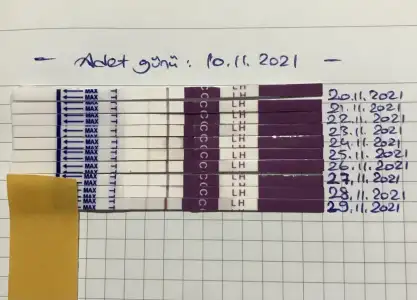 - Adet günü: 10.11.2021 -
MAX C LH 20.11.2021
MAX C LH 21.11.2021
MAX C LH 22.11.2021
MAX C LH 23.11.2021
MAX C LH 24.11.2021
MAX C LH 25.11.2021
MAX C LH 26.11.2021
MAX C LH 27.11.2021
MAX C LH 28.11.2021
MAX C LH 29.11.2021